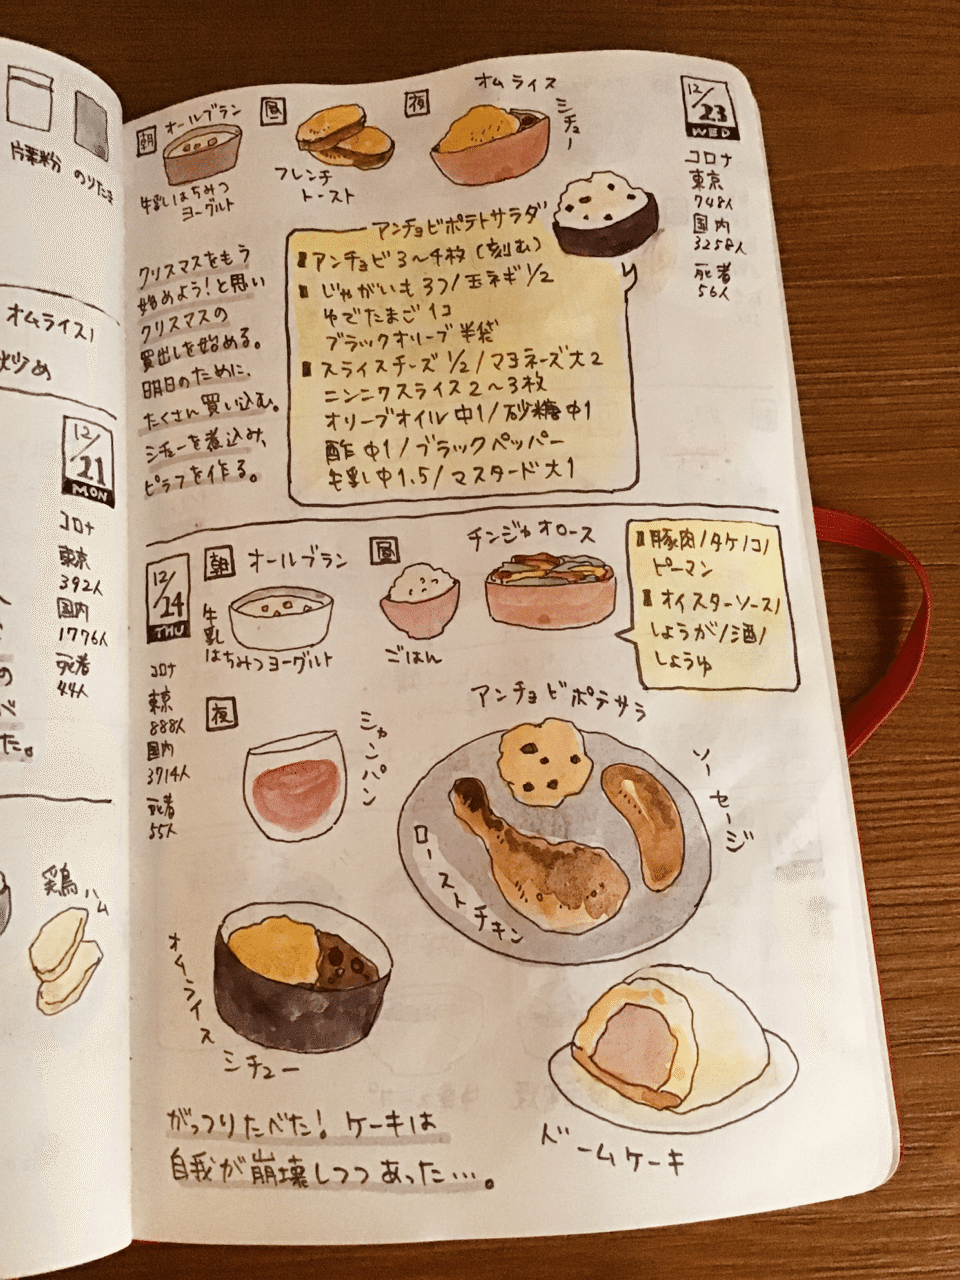 片栗粉
のりたま
オムライス/
炒め
12/21
MON
コロナ
東京
392人
国内
1776人
死者
44人
の
べ
た。
鶏ハム
朝
オールブラン
牛乳はちみつ
ヨーグルト
昼
フレンチ
トースト
夜
オムライス
シチュー
12/23
WED
コロナ
東京
748人
国内
3258人
死者
56人
クリスマスをもう
始めよう!と思い
クリスマスの
買出しを始める。
明日のために、
たくさん買い込む。
シチューを煮込み、
ピラフを作る。
アンチョビポテトサラダ
■アンチョビ3〜4枚(刻む)
■じゃがいも3つ/玉ネギ1/2
ゆでたまご1コ
ブラックオリーブ半袋
■スライスチーズ1/2/マヨネーズ大2
ニンニクスライス2〜3枚
オリーブオイル中1/砂糖中1
酢中1/ブラックペッパー
牛乳中1.5/マスタード大1
12/24
THU
コロナ
東京
888人
国内
3714人
死者
55人
朝
オールブラン
牛乳
はちみつヨーグルト
昼
ごはん
チンジャオロース
■豚肉/タケノコ/
ピーマン
■オイスターソース/
しょうが/酒/
しょうゆ
夜
シャンパン
アンチョビポテサラ
ソーセージ
ローストチキン
オムライス
シチュー
ドームケーキ
がっつりたべた!ケーキは
自我が崩壊しつつあった…。